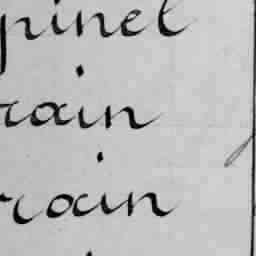 pinel
rain
rain